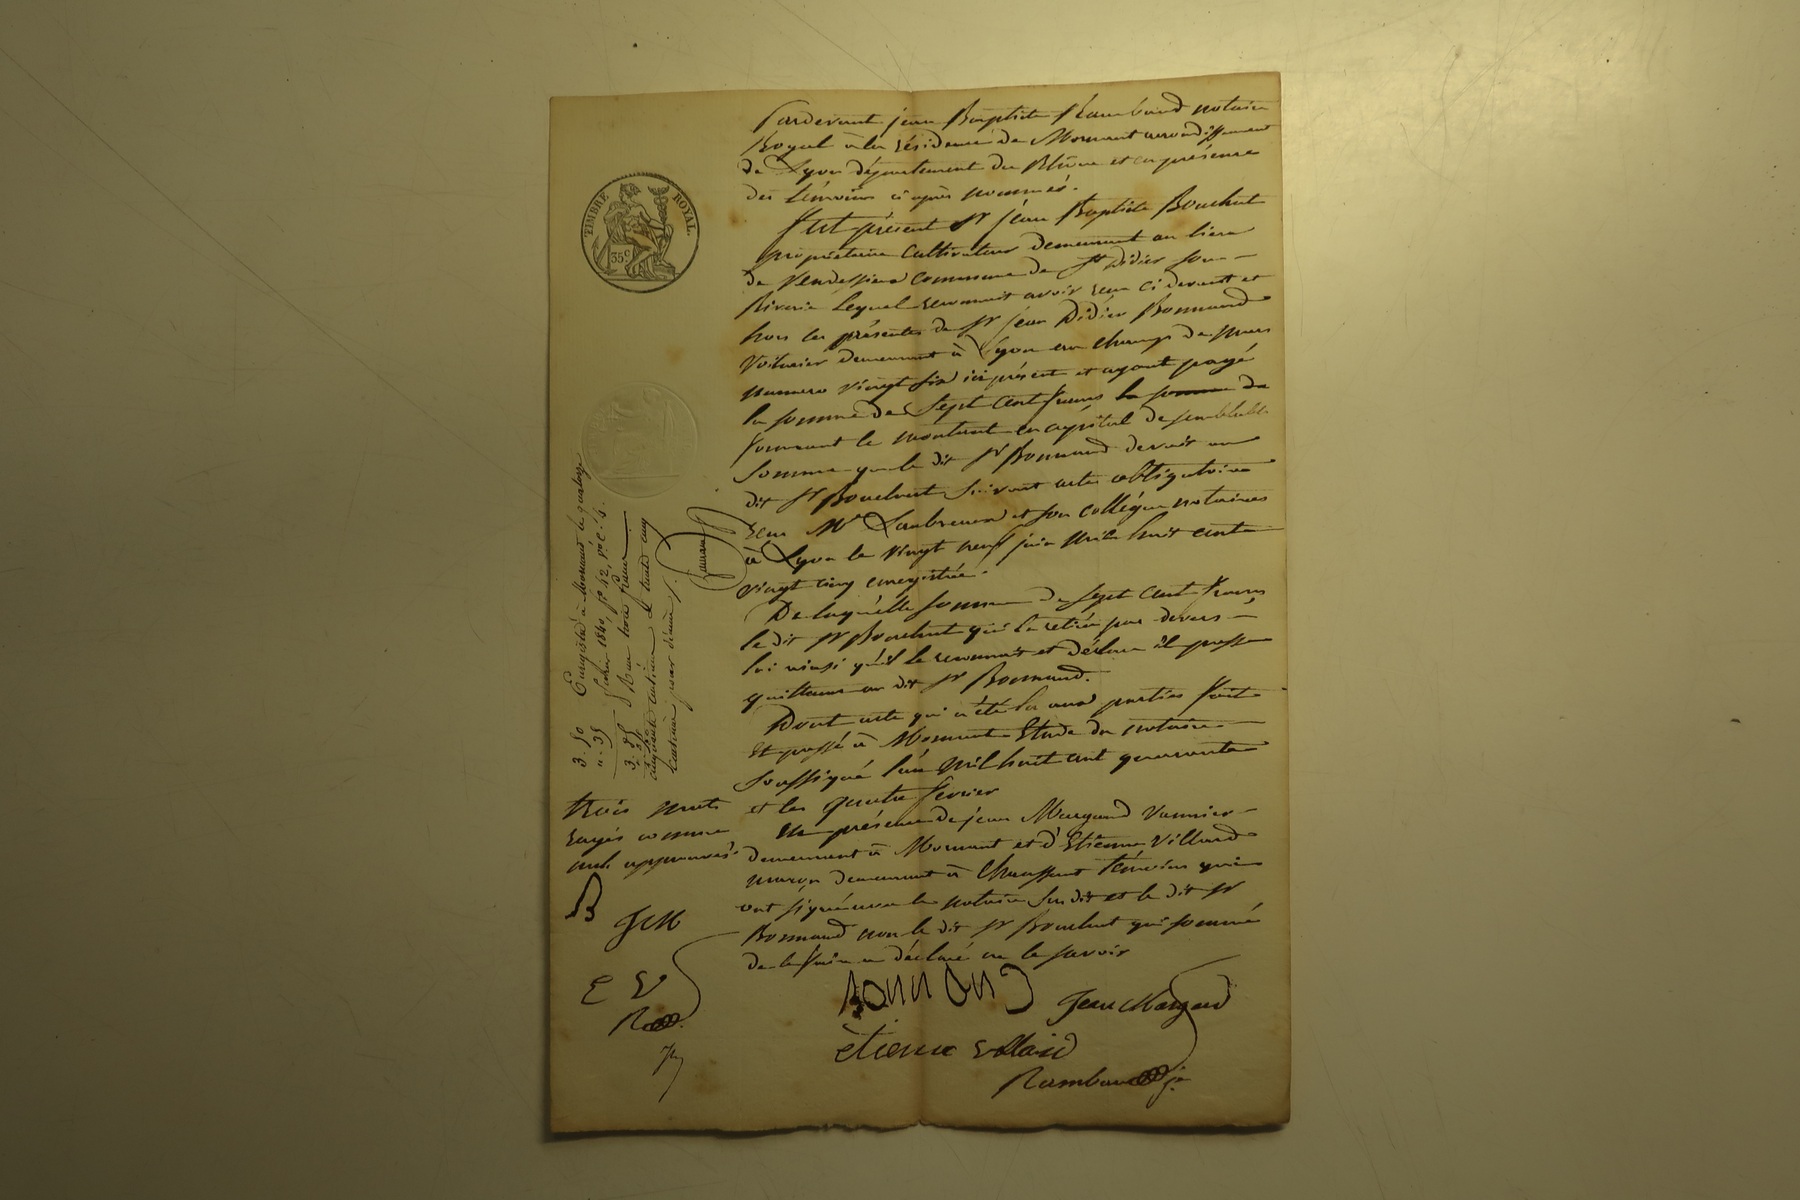 TIMBRE ROYAL
35 C
Pardevant jean Baptiste Rambaud notaire
Royal à la résidence de Mornant arrondissement
de Lyon département du Rhône et en présence
des témoins ci après nommés.
Fut présent Sr jean Baptiste Bouchut
propriétaire cultivateur demeurant au lieu
de commune de St Didier sous
Riverie lequel reconnait avoir reçu ci devant et
hors les présentes de Sr jean Didier Bonnand
Voiturier demeurant à Lyon au champ de mars
numero vingt six ici présent et ayant payé
la somme de Sept cent francs la somme de
formant le montant en capital de semblable
somme que le dit Sr Bonnand devait au
dit Sr Bouchut suivant acte obligatoire
reçu Me et son collégue notaires
à Lyon le vingt neuf juin mil huit cent
vingt cinq enregistrée.
De laquelle somme de sept cent francs
le dit Sr Bouchut qui l'a retirée par devers
lui ainsi qu'il le reconnait et déclare il passe
quittance au dit Sr Bonnand.
Dont acte qui a été lu aux parties fait
et passé à Mornant Etude du notaire
soussigné l'an mil huit cent quarante
et le quatre février
en présence de jean Margand
demeurant à Mornant et d'Etienne Villard
maçon demeurant à Chaussant témoins qui
ont signé avec le notaire susdit et le dit Sr
Bonnand non le dit Sr Bouchut qui sommé
de le faire a déclaré ne le savoir
Bonnand
Jean Margand
étienne villard
Rambaud
Enregistré à Mornant le quatorze
février 1840, fo 42, vo c. 4.
Reçu trois francs
cinquante centimes et trente cinq
centimes pour décime
3. 50
" 35
3. 85
trois mots
rayés comme
nuls approuvés
B
JM
E V
R